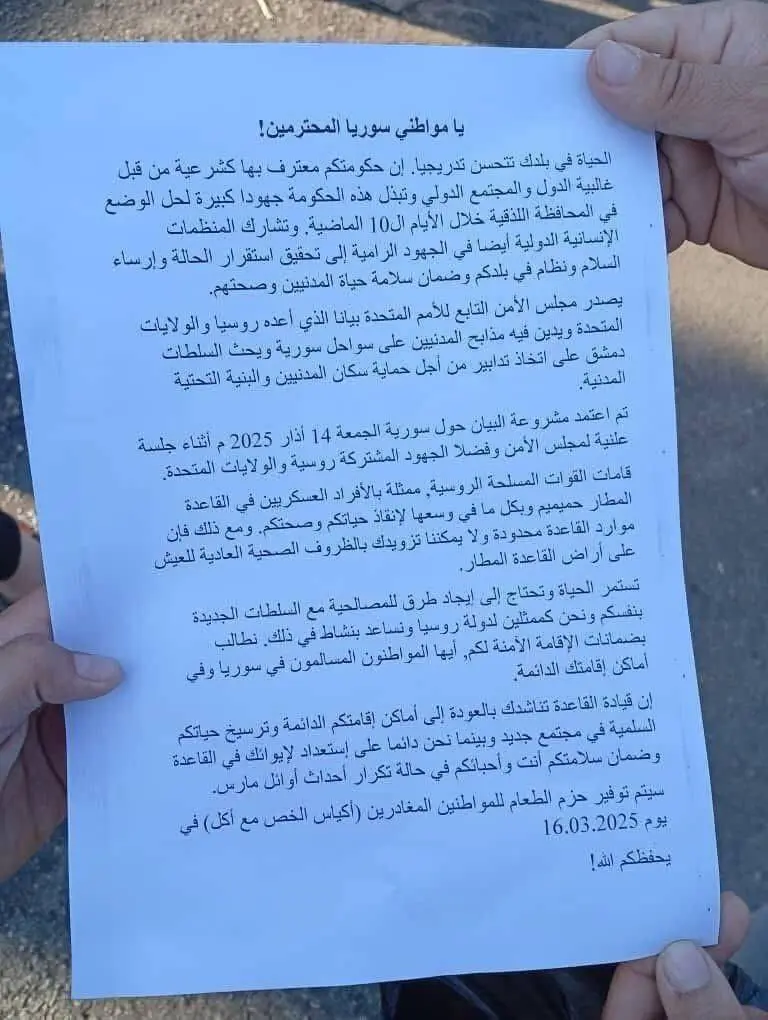 يا مواطني سوريا المحترمين!
الحياة في بلدك تتحسن تدريجيا. إن حكومتكم معترف بها كشرعية من قبل
غالبية الدول والمجتمع الدولي وتبذل هذه الحكومة جهودا كبيرة لحل الوضع
في المحافظة اللذقية خلال الأيام ال10 الماضية. وتشارك المنظمات
الإنسانية الدولية أيضا في الجهود الرامية إلى تحقيق استقرار الحالة وإرساء
السلام ونظام في بلدكم وضمان سلامة حياة المدنيين وصحتهم.
يصدر مجلس الأمن التابع للأمم المتحدة بيانا الذي أعده روسيا والولايات
المتحدة ويدين فيه مذابح المدنيين على سواحل سورية ويحث السلطات
دمشق على اتخاذ تدابير من أجل حماية سكان المدنيين والبنية التحتية
المدنية.
تم اعتماد مشروعة البيان حول سورية الجمعة 14 أذار 2025 م أثناء جلسة
علنية لمجلس الأمن وفضلا الجهود المشتركة روسية والولايات المتحدة.
قامات القوات المسلحة الروسية, ممثلة بالأفراد العسكريين في القاعدة
المطار حميميم وبكل ما في وسعها لإنقاذ حياتكم وصحتكم. ومع ذلك فإن
موارد القاعدة محدودة ولا يمكننا تزويدك بالظروف الصحية العادية للعيش
على أراض القاعدة المطار.
تستمر الحياة وتحتاج إلى إيجاد طرق للمصالحية مع السلطات الجديدة
بنفسكم ونحن كممثلين لدولة روسيا ونساعد بنشاط في ذلك. نطالب
بضمانات الإقامة الأمنة لكم, أيها المواطنون المسالمون في سوريا وفي
أماكن إقامتك الدائمة.
إن قيادة القاعدة تناشدك بالعودة إلى أماكن إقامتكم الدائمة وترسيخ حياتكم
السلمية في مجتمع جديد وبينما نحن دائما على إستعداد لإيوائك في القاعدة
وضمان سلامتكم أنت وأحبائكم في حالة تكرار أحداث أوائل مارس.
سيتم توفير حزم الطعام للمواطنين المغادرين (أكياس الخص مع أكل) في
يوم 16.03.2025
يحفظكم الله!